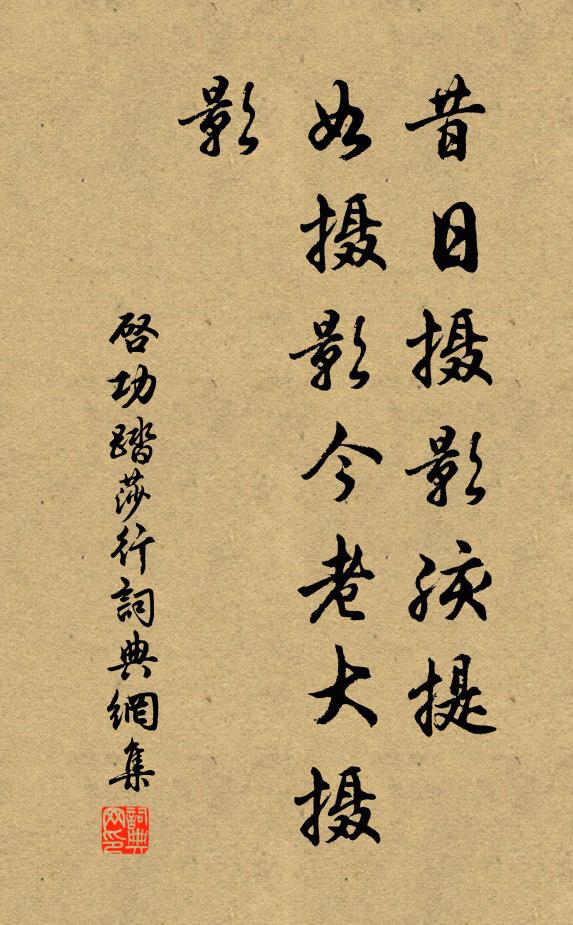 昔日摄影孩提
如摄影今老大摄
影
啓功踏莎行詞典網集
詞典
网印